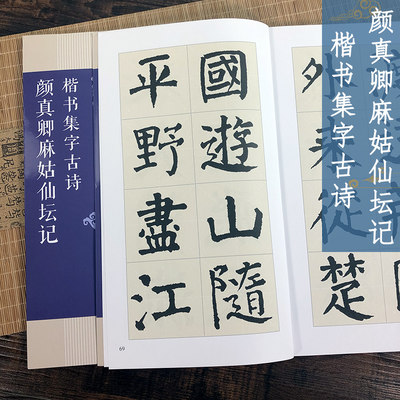 颜真卿麻姑仙坛记
楷书集字古诗
楷书集字古诗
颜真卿麻姑仙坛记
國遊山隨
平野盡江
外來從楚
69